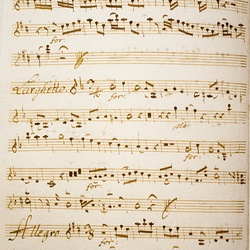 for:
Larghetto. for:
pia
for:
for:
Allegro. for: